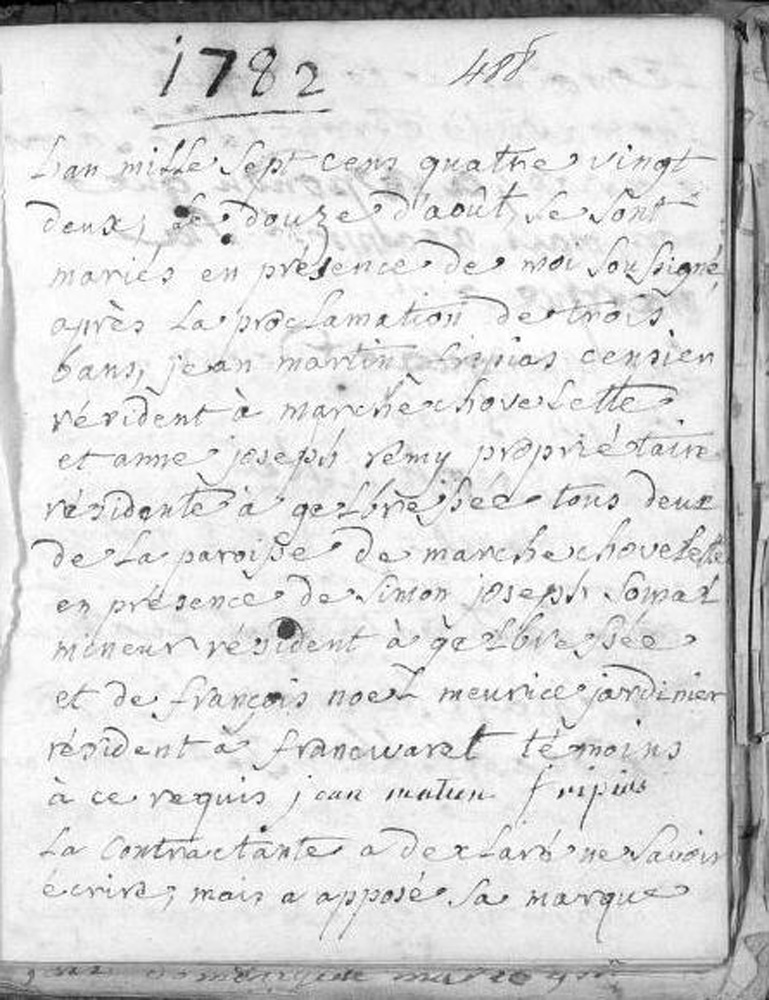 1782
L'an mille sept cens quatre vingt
deux, le douze d'août, se sont
mariés en présence de moi soussigné,
après la proclamation de trois
bans, jean martin fripias censier
résident à marche chovelette
et anne joseph remy propriétaire
résidente à gelbressée tous deux
de la paroisse de marche chovelette
en présence de Simon joseph
mineur résident à gelbressée
et de françois noel meurice jardinier
résident à francwaret témoins
à ce requis jean fripias
La contractante a declaré ne savoir
écrire, mais a apposé sa marque